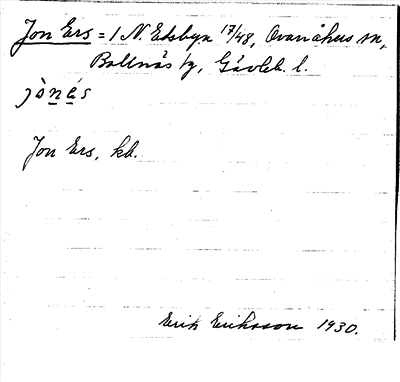 Jon Ers = 1 N. Edsbyn 17/48, Ovanåkers sn,
Bollnäs tg, Gävleb. l.
jònés
Jon Ers, kb.
Erik Eriksson 1930.